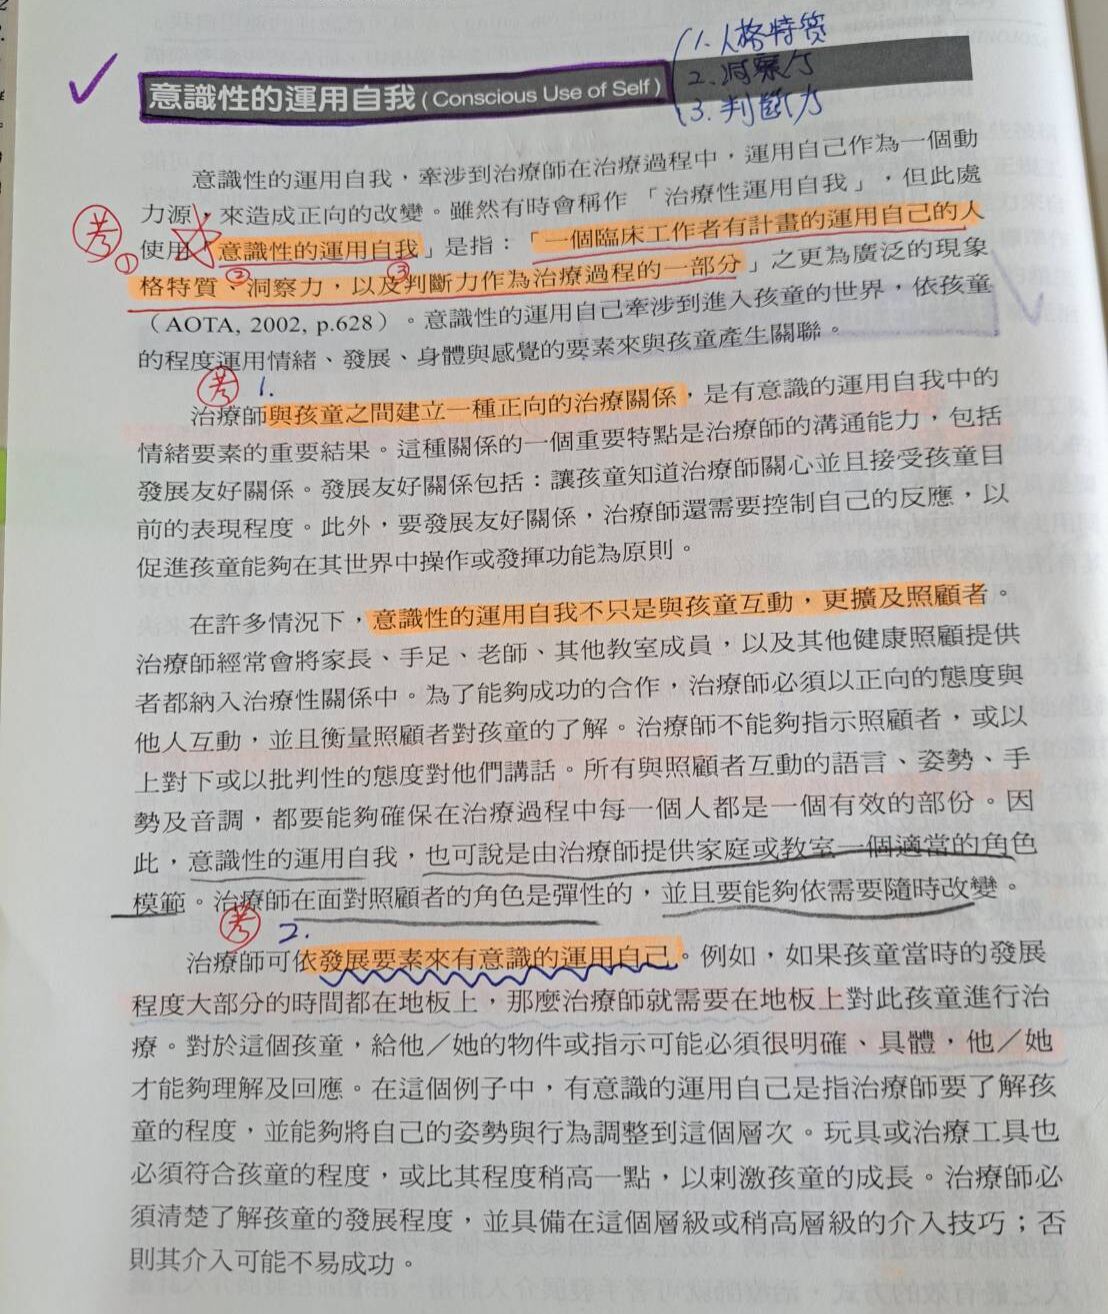 1. 人格特質
2. 洞察力
3. 判斷力
意識性的運用自我(Conscious Use of Self)
意識性的運用自我,牽涉到治療師在治療過程中,運用自己作為一個動
力源,來造成正向的改變。雖然有時會稱作「治療性運用自我」,但此處
考
使用「意識性的運用自我」是指:「一個臨床工作者有計畫的運用自己的人
① ② ③
格特質、洞察力,以及判斷力作為治療過程的一部分」之更為廣泛的現象
(AOTA, 2002, p.628)。意識性的運用自己牽涉到進入孩童的世界,依孩童
的程度運用情緒、發展、身體與感覺的要素來與孩童產生關聯。
考 1.
治療師與孩童之間建立一種正向的治療關係,是有意識的運用自我中的
情緒要素的重要結果。這種關係的一個重要特點是治療師的溝通能力,包括
發展友好關係。發展友好關係包括:讓孩童知道治療師關心並且接受孩童目
前的表現程度。此外,要發展友好關係,治療師還需要控制自己的反應,以
促進孩童能夠在其世界中操作或發揮功能為原則。
在許多情況下,意識性的運用自我不只是與孩童互動,更擴及照顧者。
治療師經常會將家長、手足、老師、其他教室成員,以及其他健康照顧提供
者都納入治療性關係中。為了能夠成功的合作,治療師必須以正向的態度與
他人互動,並且衡量照顧者對孩童的了解。治療師不能夠指示照顧者,或以
上對下或以批判性的態度對他們講話。所有與照顧者互動的語言、姿勢、手
勢及音調,都要能夠確保在治療過程中每一個人都是一個有效的部份。因
此,意識性的運用自我,也可說是由治療師提供家庭或教室一個適當的角色
模範。治療師在面對照顧者的角色是彈性的,並且要能夠依需要隨時改變。
考 2.
治療師可依發展要素來有意識的運用自己。例如,如果孩童當時的發展
程度大部分的時間都在地板上,那麼治療師就需要在地板上對此孩童進行治
療。對於這個孩童,給他/她的物件或指示可能必須很明確、具體,他/她
才能夠理解及回應。在這個例子中,有意識的運用自己是指治療師要了解孩
童的程度,並能夠將自己的姿勢與行為調整到這個層次。玩具或治療工具也
必須符合孩童的程度,或比其程度稍高一點,以刺激孩童的成長。治療師必
須清楚了解孩童的發展程度,並具備在這個層級或稍高層級的介入技巧;否
則其介入可能不易成功。